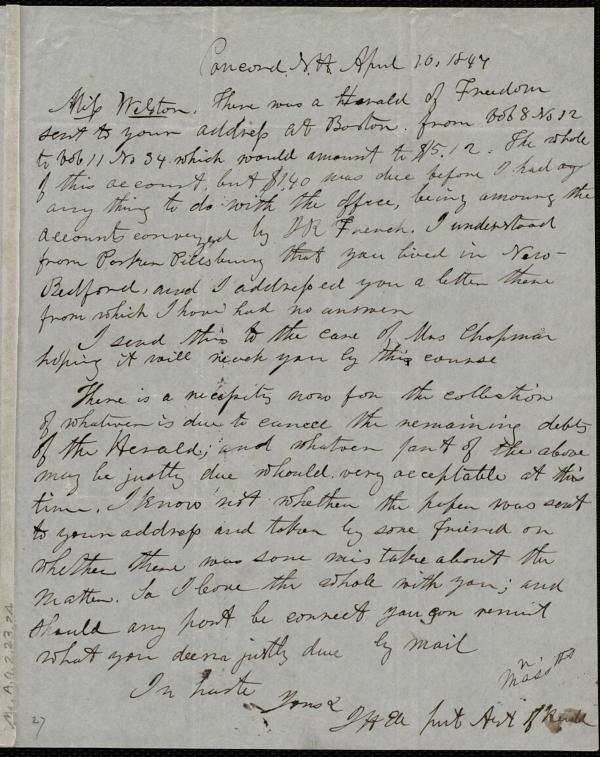 Concord, N.H. April 10, 1847
Miss Weston. There was a Herald of Freedom
sent to your address at Boston. from Vol 8 No 12
to Vol 11 No 34 which would amount to $5.12. The whole
of this account, but $1,40 was due before I had
any thing to do with the office, being amoung the
accounts conveyed by J R French. I understood
from Parker Pillsbury that you lived in New-
Bedford, and I addressed you a letter there
from which I have had no answer
I send this to the care of Mrs Chapman
hoping it will reach you by this course
There is a necessity now for the collection
of whatever is due to cancel the remaining debts
of the Herald; and whatever part of the above
may be justly due whould very acceptable at this
time. I know not whether the paper was sent
to your address and taken by some friend or
whether there was some mistake about the
matter. So I leave the whole with you; and
should any part be correct you can remit
what you deem justly due by mail
In haste
Yours &
Agt of Herald
Ms. A.9.2.23.24
27